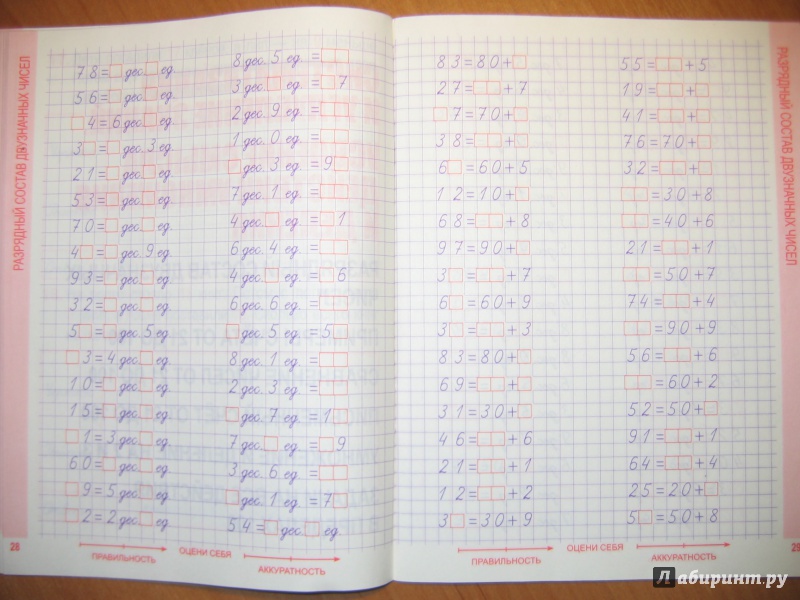 РАЗРЯДНЫЙ СОСТАВ ДВУЗНАЧНЫХ ЧИСЕЛ
78=□ дес.□ ед.
56=□ дес.□ ед.
□4=6 дес.□ ед.
3□=□ дес.3 ед.
21=□ дес.□ ед.
53=□ дес.□ ед.
70=□ дес.□ ед.
4□=□ дес.9 ед.
93=□ дес.□ ед.
32=□ дес.□ ед.
5□=□ дес.5 ед.
□3=4 дес.□ ед.
10=□ дес.□ ед.
15=□ дес.□ ед.
□1=3 дес.□ ед.
60=□ дес.□ ед.
□9=5 дес.□ ед.
□2=2 дес.□ ед.
8 дес. 5 ед. =□□
3 дес.□ ед. =□7
2 дес. 9 ед. =□□
1 дес. 0 ед. =□□
□ дес. 3 ед. =9□
7 дес. 1 ед. =□□
4 дес.□ ед. =□1
6 дес. 4 ед. =□□
4 дес.□ ед. =□6
6 дес. 6 ед. =□□
□ дес. 5 ед. =5□
8 дес. 1 ед. =□□
2 дес. 3 ед. =□□
□ дес. 7 ед. =1□
7 дес.□ ед. =□9
3 дес. 6 ед. =□□
□ дес. 1 ед. =7□
54=□ дес.□ ед.
28
ПРАВИЛЬНОСТЬ
ОЦЕНИ СЕБЯ
АККУРАТНОСТЬ
83=80+□
27=□□+7
□7=70+□
38=□□+□
6□=60+5
12=10+□
68=□□+8
97=90+□
3□=□□+7
6□=60+9
3□=□□+3
83=80+□
69=□□+□
31=30+□
46=□□+6
21=□□+1
12=□□+2
3□=30+9
55=□□+5
19=□□+□
41=□□+□
76=70+□
32=□□+□
□□=30+8
□□=40+6
21=□□+1
□□=50+7
74=□□+4
□□=90+9
56=□□+6
□□=60+2
52=50+□
91=□□+1
64=□□+4
25=20+□
5□=50+8
РАЗРЯДНЫЙ СОСТАВ ДВУЗНАЧНЫХ ЧИСЕЛ
ПРАВИЛЬНОСТЬ
ОЦЕНИ СЕБЯ
АККУРАТНОСТЬ
29
Лабиринт.ру